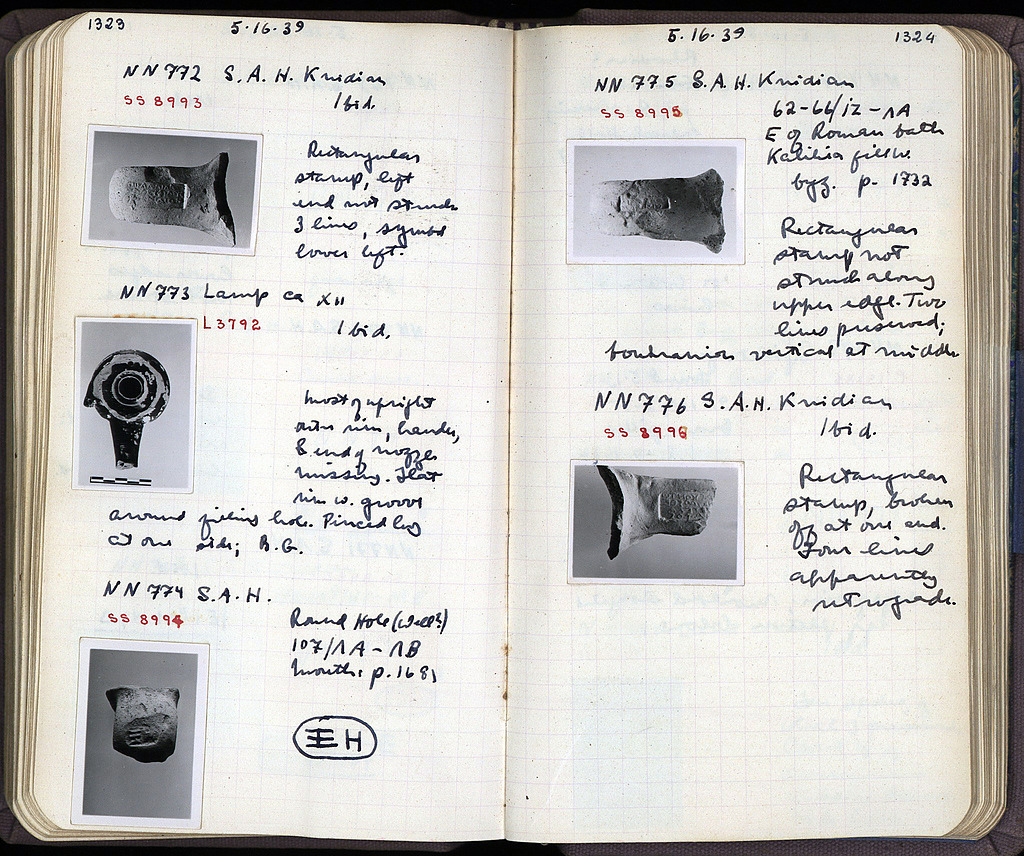 1323
5·16·39
NN 772 S. A. H. Knidian
SS 8993
Ibid.
Rectangular
stamp, left
end not struck
3 lines, symbol
lower left.
NN 773 Lamp ca XII
L3792
Ibid.
Most of upright
outer rim, handle,
& end of nozzle
missing. Flat
rim w. groove
around filling hole. Pierced lug
at one side; B.G.
NN 774 S.A.H.
SS 8994
Round Hole (Well?)
107/ΛA - ΛB
Mouth: p. 1681
EH
5·16·39
1324
NN 775 S. A. H. Knidian
SS 8995
62-66/ΙΖ - ΛA
E of Roman bath
fill w.
byz. p. 1732
Rectangular
stamp not
struck along
upper edge. Two
lines preserved;
boukranion vertical at middle
NN 776 S.A.H. Knidian
SS 8996
Ibid.
Rectangular
stamp, broken
off at one end.
Four lines
apparently
retrograde.